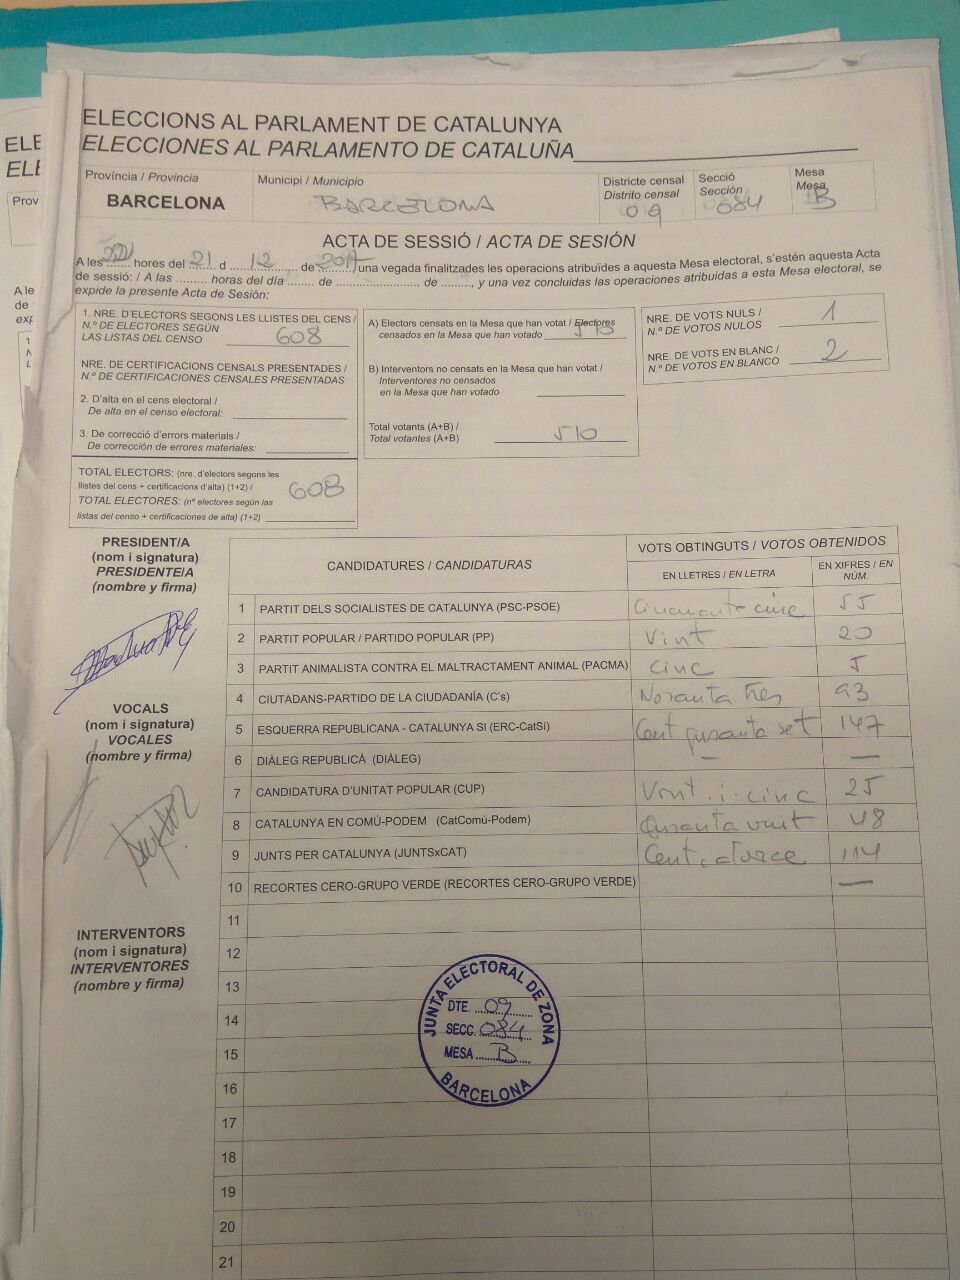 ELECCIONS AL PARLAMENT DE CATALUNYA
ELECCIONES AL PARLAMENTO DE CATALUÑA
Província / Provincia
BARCELONA
Municipi / Municipio
BARCELONA
Districte censal
Distrito censal
09
Secció
Sección
084
Mesa
Mesa
B
ACTA DE SESSIÓ / ACTA DE SESIÓN
A les 22 hores del 21 d 12 de 2017, una vegada finalitzades les operacions atribuïdes a aquesta Mesa electoral, s'estén aquesta Acta
de sessió: / A las ......... horas del día ....... de ........................ de ........., y una vez concluidas las operaciones atribuidas a esta Mesa electoral, se
expide la presente Acta de Sesión:
1. NRE. D'ELECTORS SEGONS LES LLISTES DEL CENS /
N.º DE ELECTORES SEGÚN
LAS LISTAS DEL CENSO 608
NRE. DE CERTIFICACIONS CENSALS PRESENTADES /
N.º DE CERTIFICACIONES CENSALES PRESENTADAS
2. D'alta en el cens electoral /
De alta en el censo electoral:
3. De correcció d'errors materials /
De corrección de errores materiales:
TOTAL ELECTORS: (nre. d'electors segons les
llistes del cens + certificacions d'alta) (1+2) / 608
TOTAL ELECTORES: (nº electores según las
listas del censo + certificaciones de alta) (1+2)
A) Electors censats en la Mesa que han votat / Electores
censados en la Mesa que han votado 510
B) Interventors no censats en la Mesa que han votat /
Interventores no censados
en la Mesa que han votado
Total votants (A+B) /
Total votantes (A+B) 510
NRE. DE VOTS NULS /
N.º DE VOTOS NULOS 1
NRE. DE VOTS EN BLANC /
N.º DE VOTOS EN BLANCO 2
PRESIDENT/A
(nom i signatura)
PRESIDENTE/A
(nombre y firma)
VOCALS
(nom i signatura)
VOCALES
(nombre y firma)
INTERVENTORS
(nom i signatura)
INTERVENTORES
(nombre y firma)
CANDIDATURES / CANDIDATURAS
VOTS OBTINGUTS / VOTOS OBTENIDOS
EN LLETRES / EN LETRA
EN XIFRES / EN
NÚM.
1 PARTIT DELS SOCIALISTES DE CATALUNYA (PSC-PSOE) Cinquanta-cinc 55
2 PARTIT POPULAR / PARTIDO POPULAR (PP) Vint 20
3 PARTIT ANIMALISTA CONTRA EL MALTRACTAMENT ANIMAL (PACMA) Cinc 5
4 CIUTADANS-PARTIDO DE LA CIUDADANÍA (C's) Noranta tres 93
5 ESQUERRA REPUBLICANA - CATALUNYA SI (ERC-CatSí) Cent quranta set 147
6 DIÀLEG REPUBLICÀ (DIÀLEG) — —
7 CANDIDATURA D'UNITAT POPULAR (CUP) Vint.i.cinc 25
8 CATALUNYA EN COMÚ-PODEM (CatComú-Podem) Quranta vuit 48
9 JUNTS PER CATALUNYA (JUNTSxCAT) Cent catorce 114
10 RECORTES CERO-GRUPO VERDE (RECORTES CERO-GRUPO VERDE) —
11
12
13
14
15
16
17
18
19
20
21
JUNTA ELECTORAL DE ZONA
DTE. 09
SECC. 084
MESA B
BARCELONA